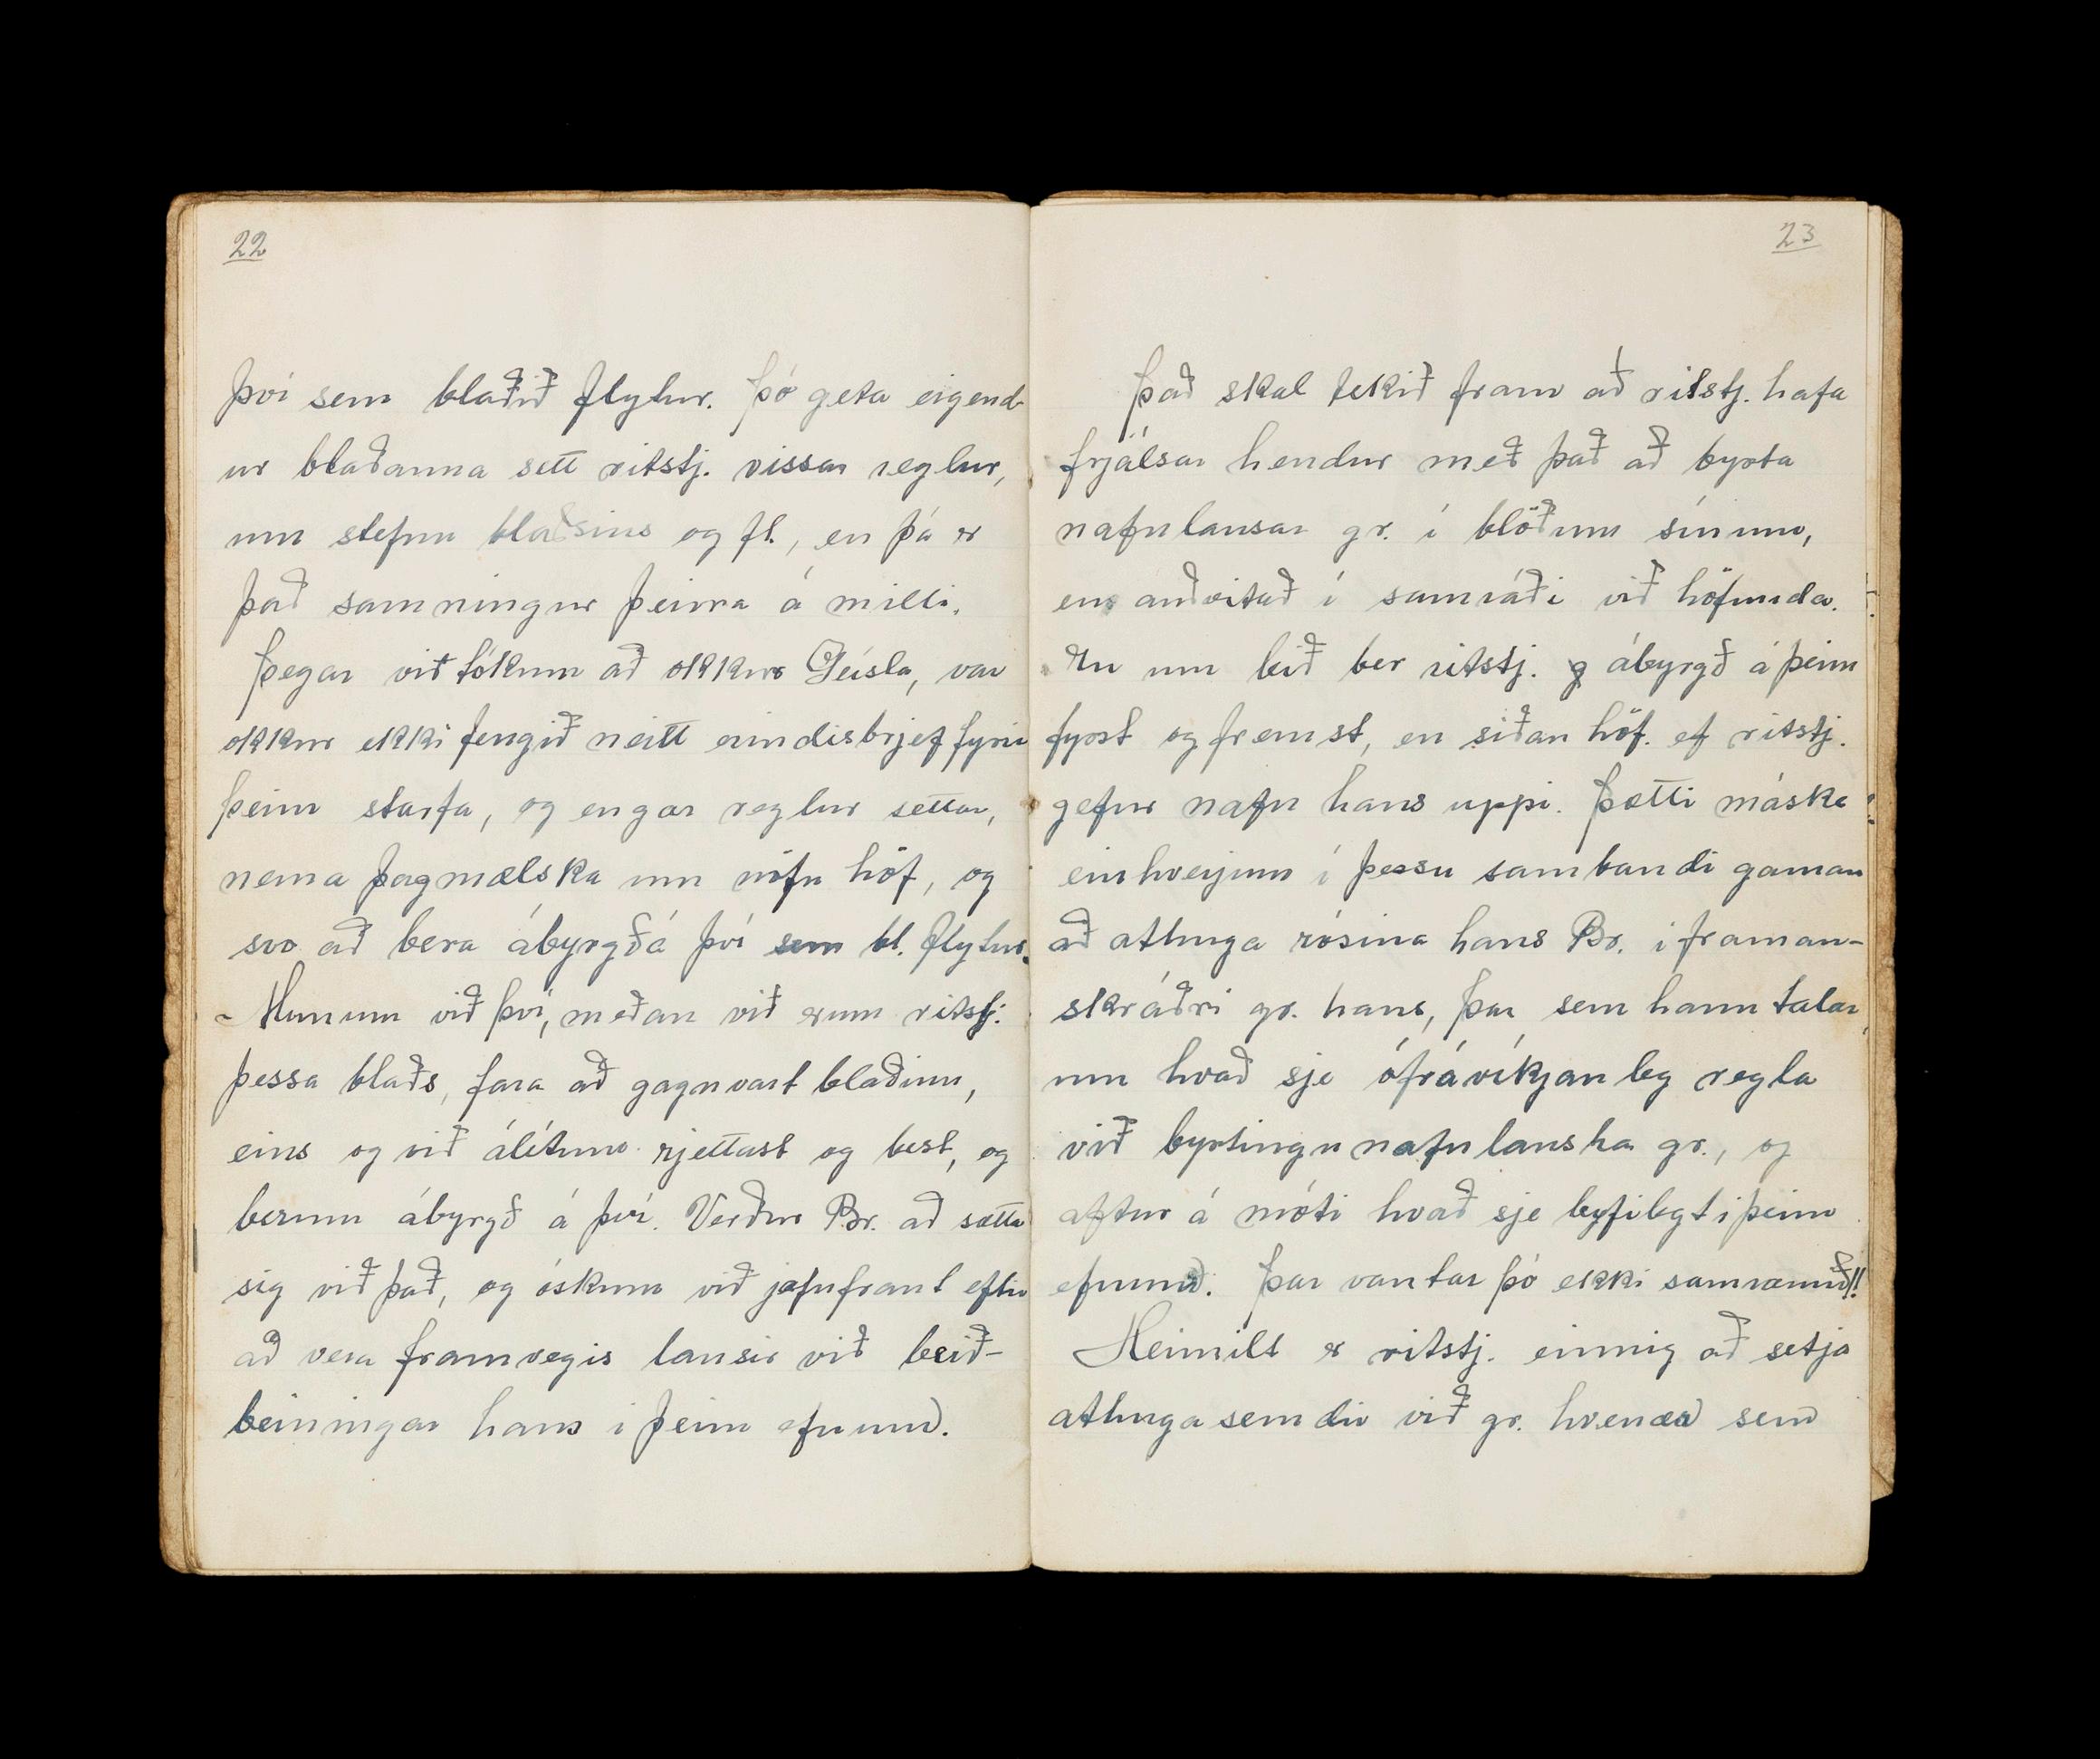 22
því sem blaðið flytur. Þó geta eigend-
ur blaðanna sett ritstj. vissar reglur,
um stefnu blaðsins og fl., en þá er
það samningur þeirra á milli.
Þegar við tókum að okkur Geisla, var
okkur ekki fengið neitt erindisbrjef fyrir
þeim starfa, og engar reglur settar,
nema þagmælska um nöfn höf, og
svo að bera ábyrgð á því sem bl. flytur.
- Munum við því, meðan við erum ritstj.
þessa blaðs, fara að gagnvart blaðinu,
eins og við álítum rjettast og best, og
berum ábyrgð á því. Verður Br. að sætta
sig við það, og óskum við jafnframt eftir
að vera framvegis lausir við leið-
beiningar hans i þeim efnum.
23
Það skal tekið fram að ritstj. hafa
frjálsar hendur með það að byrta
nafnlausar gr. í blöðum sínum,
en auðvitað í samráði við höfunda.
En um leið ber ritstj. ábyrgð á þeim
fyrst og fremst, en síðan höf. ef ritstj.
gefur nafn hans uppi. Þætti máske
einhverjum í þessu sambandi gaman
að athuga rósina hans Br. i framan-
skráðri gr. hans, þar sem hann talar
um hvað sje ófrávíkjanleg regla
við byrtingu nafnlausra gr., og
aftur á móti hvað sje leyfilegt i þeim
efnum. Þar vantar þó ekki samræmið!!
Heimilt er ritstj. einnig að setja
athugasemdir við gr. hvenær sem